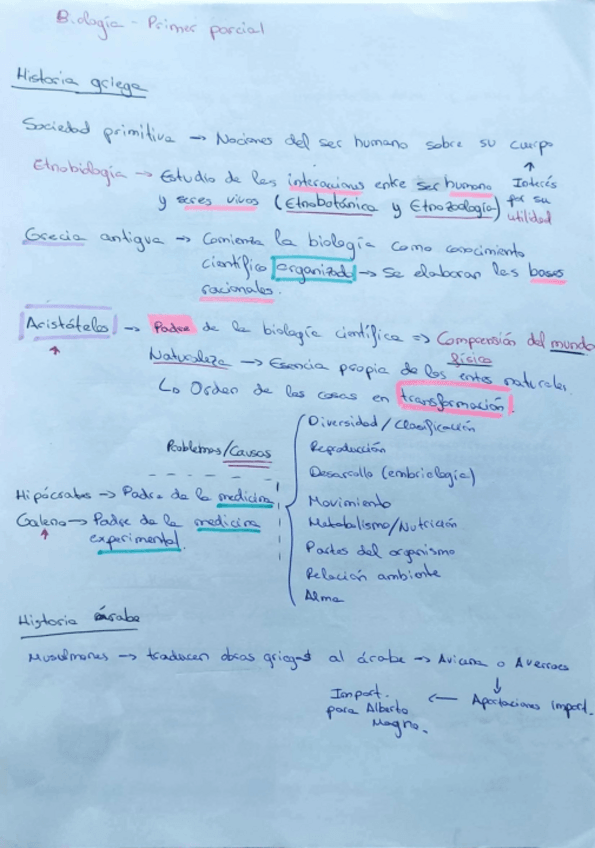 Biología - Primer parcial
Historia griega
Sociedad primitiva → Nociones del ser humano sobre su cuerpo
↑
Interés por su utilidad
Etnobiología → Estudio de las interacciones entre ser humano
y seres vivos (Etnobotánica y Etnozoología)
Grecia antigua → Comienza la biología como conocimiento
científico organizado → Se elaboran las bases
racionales.
Aristóteles → Padre de la biología científica => Comprensión del mundo
físico
Naturaleza → Esencia propia de los entes naturales.
↳ Orden de las cosas en transformación.
Problemas/Causas
Diversidad / Clasificación
Reproducción
Desarrollo (embriología)
Movimiento
Metabolismo/Nutrición
Partes del organismo
Relación ambiente
Alma
Hipócrates → Padre de la medicina
Galeno → Padre de la medicina
experimental.
Historia árabe
Musulmanes → traducen obras griegas al árabe → Avicena o Averroes
↓
Aportaciones import.
← Import.
para Alberto
Magno.